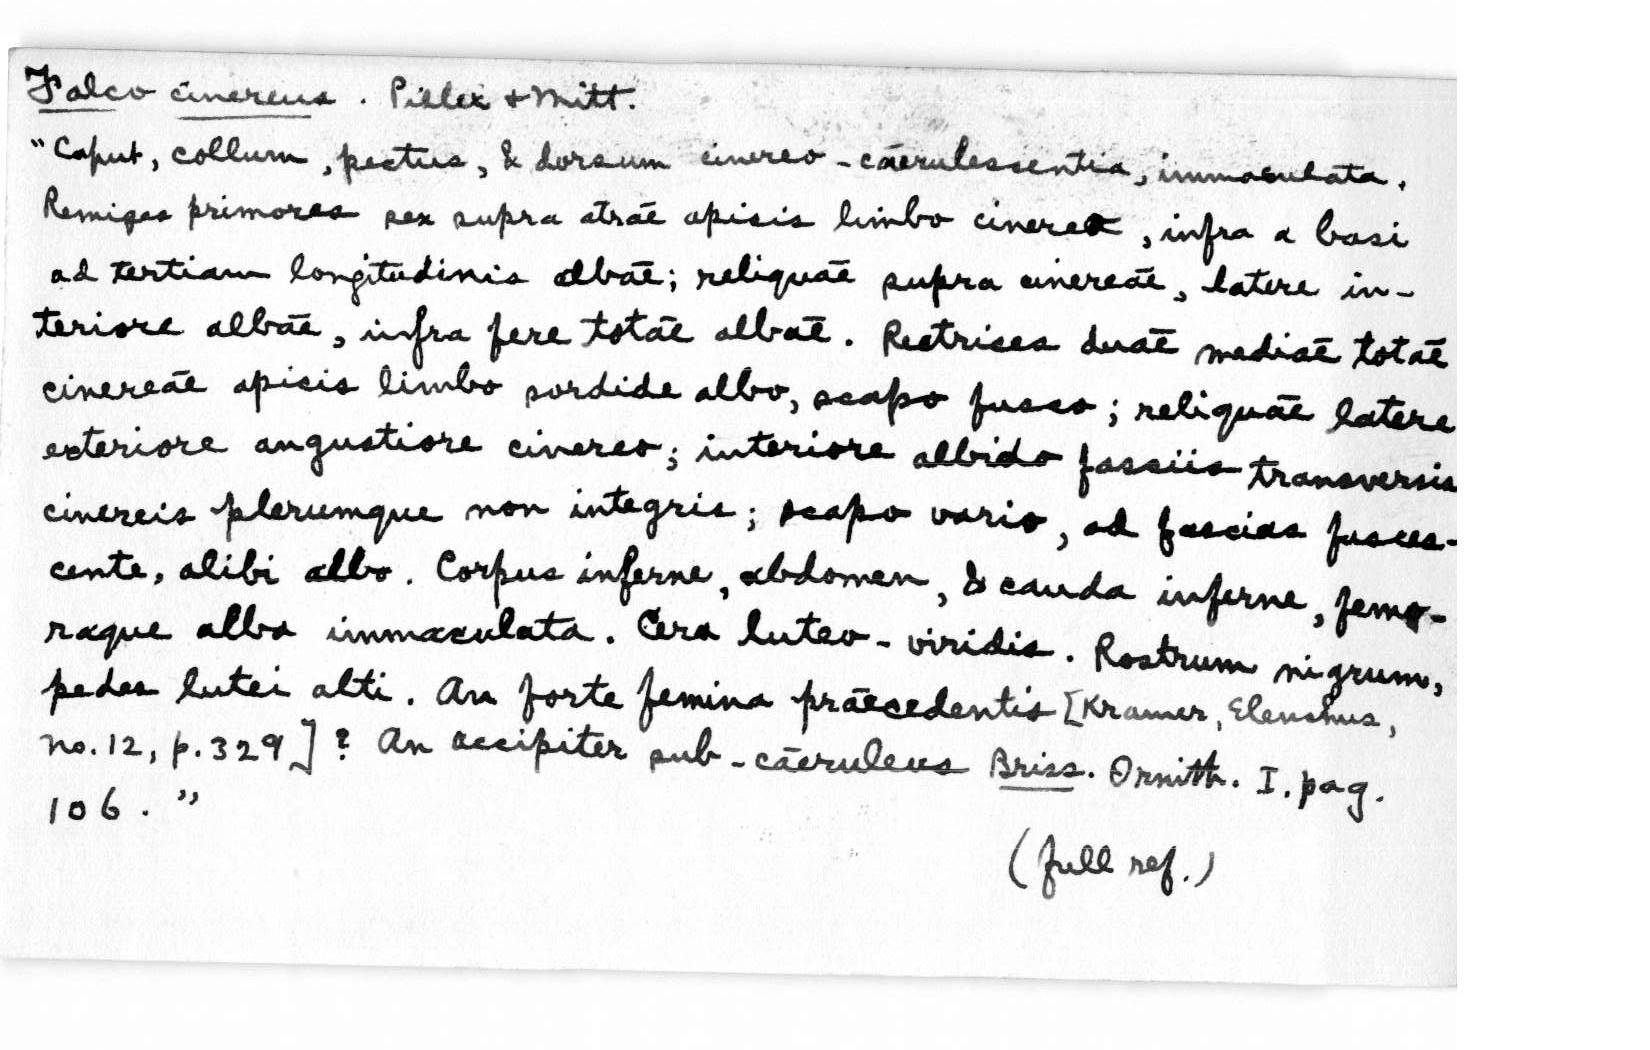 Falco cinereus. Piller & Mitt.
"Caput, collum, pectus, & dorsum cinereo-cāerulescentia, immaculata.
Remiges primores sex supra atrāe apicis limbo cinereo, infra a basi
ad tertiam longitudinis albāe; reliquāe supra cinereāe, latere in-
teriore albāe, infra fere totāe albāe. Rectrices duāe mediāe totāe
cinereāe apicis limbo sordide albo, scapo fusco; reliquāe latere
exteriore angustiore cinereo; interiore albido fasciis transversis
cinereis plerumque non integris; scapo vario, ad fascias fusces-
cente, alibi albo. Corpus inferne, abdomen, & cauda inferne, femo-
raque alba immaculata. Cera luteo-viridis. Rostrum nigrum,
pedes lutei alti. An forte femina prāecedentis [Kramer, Elenchus,
no. 12, p. 329]? An accipiter sub-cāeruleus Briss. Ornith. I. pag.
106."
(full ref.)